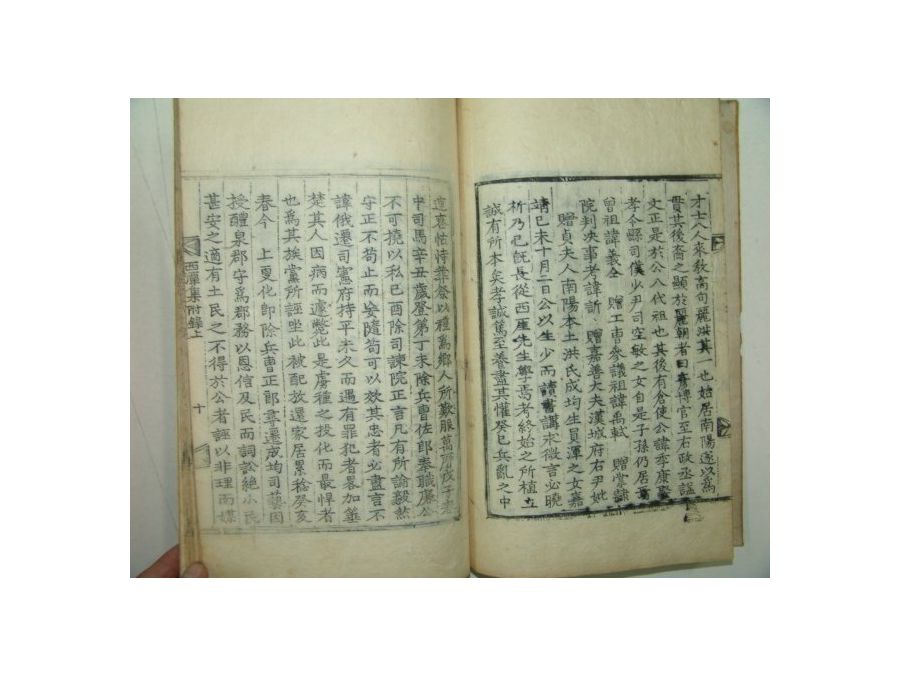 才士八人來敎高句麗洪其一也始居南陽遂以爲
貫其後裔之顯於麗朝者曰 博官至右政丞諡
文正是於公八代祖也其後有倉使公諱季康
孝令縣司僕少尹司空敏之女自是子孫仍居焉
曾祖諱義全 贈工曹參議祖諱禹軾 贈掌隸
院判決事考諱訢 贈嘉善大夫漢城府右尹妣
贈貞夫人南陽本土洪氏成均生員渾之女嘉
靖己未十月二日公以生少而讀書講求微言必曉
析乃已旣長從西厓先生學焉考終始之所植立
誠有所本矣孝誠篤至養盡其懽癸巳兵亂之中
連哀怙恃葬祭以禮爲鄕人所歎服萬曆戊子
中司馬辛丑歲登第丁未除兵曹佐郞奉職廉公
不可撓以私己酉除司諫院正言凡有所論毅然
守正不苟止而安隨苟可以效其忠者必盡言不
諱俄遷司憲府持平未久而遇有罪犯者畧加箠
楚其人因病而遽斃此是虜種之投化而最悍者
也爲其族黨所誣坐此被配放還家居累稔癸亥
春今 上更化卽除兵曹正郞拿遷成均司藝因
授醴泉郡守爲郡務以恩信及民而詞訟絶小民
甚安之適有土民之不得於公者誣以非理而媒
西潭集附錄上 十